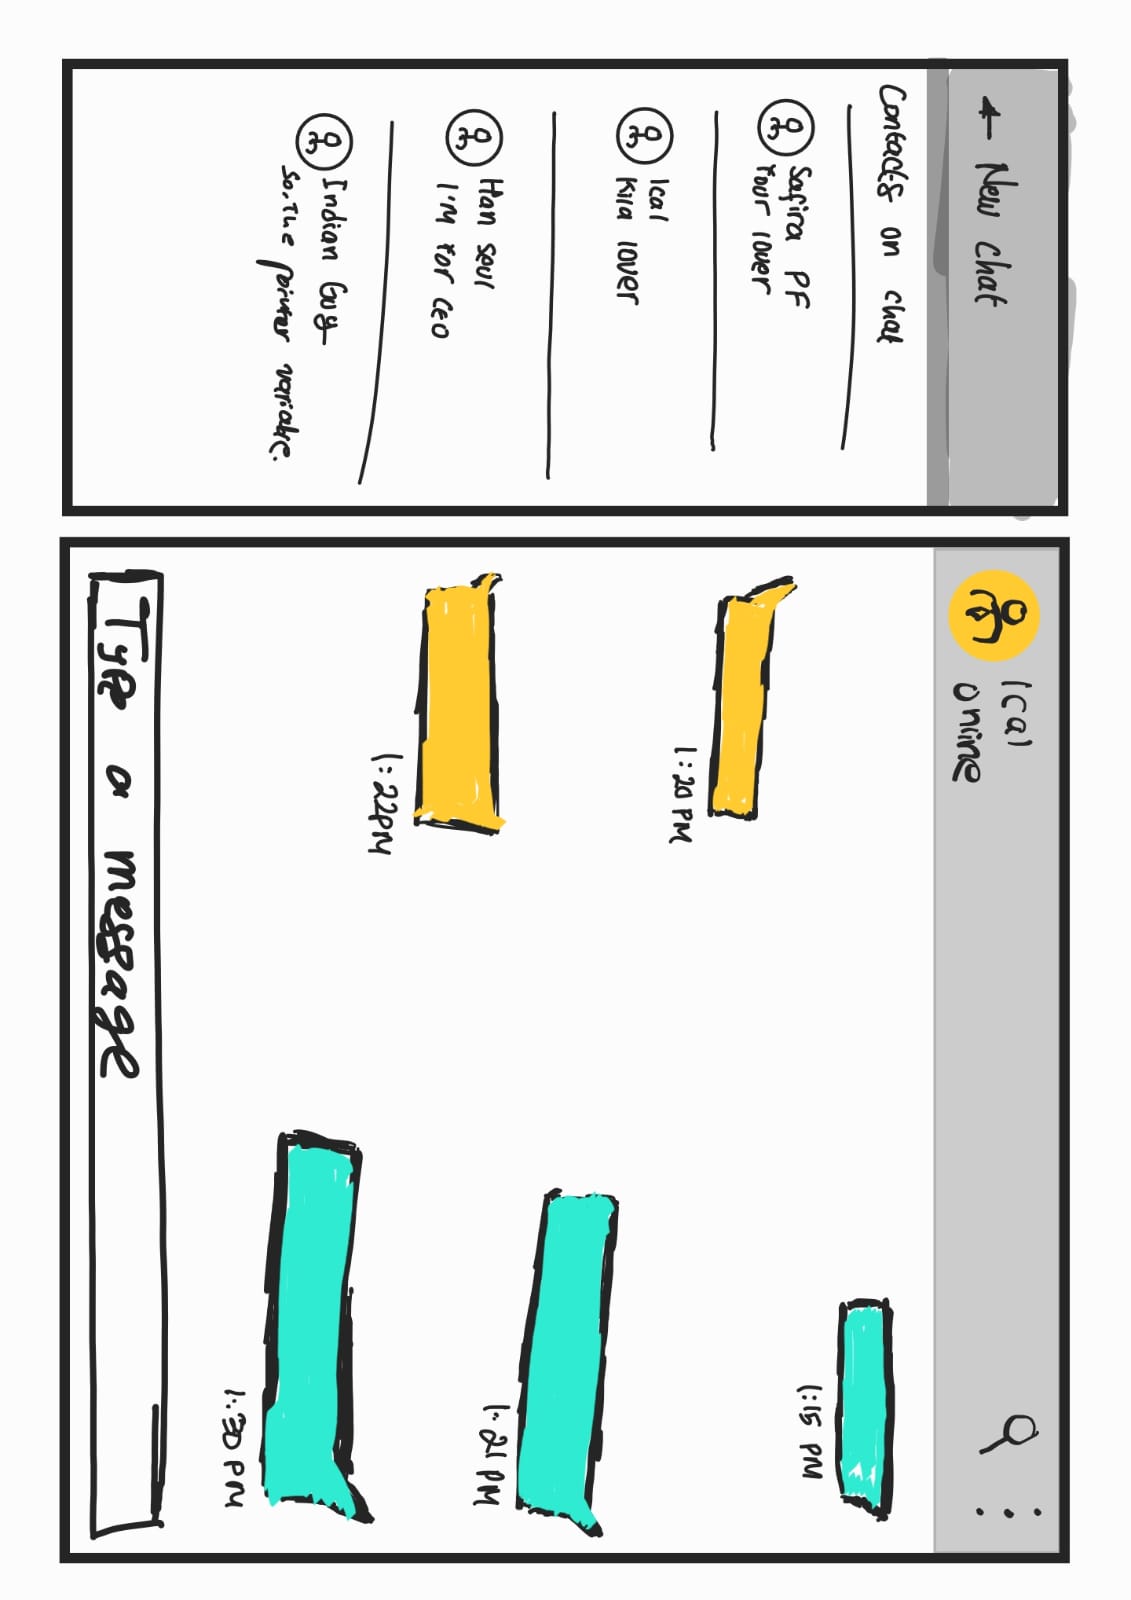 ← New chat
Contacts on chat
Safira PF
Your lover
Ical
Kila lover
Han seul
I'M Your CEO
Indian Guy
So, The pointer variable.
Ical
online
1:15 PM
1:20 PM
1:21 PM
1:22PM
1:30 PM
Type a message